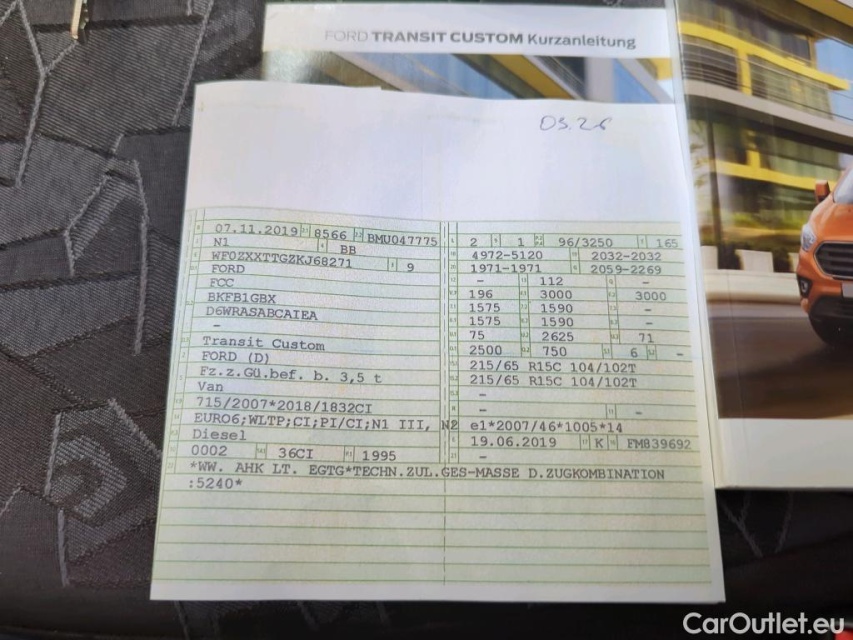 FORD TRANSIT CUSTOM Kurzanleitung
03.26
07.11.2019 8566 BMU047775 2 1 96/3250 165
N1 BB 4972-5120 2032-2032
WF0ZXXTTGZKJ68271 9 1971-1971 2059-2269
FORD - 112 -
FCC 196 3000 3000
BKFB1GBX 1575 1590 -
D6WRASABCAIEA 1575 1590 -
- 75 2625 71
Transit Custom 2500 750 6 -
FORD (D) 215/65 R15C 104/102T
Fz.z.Gü.bef. b. 3,5 t 215/65 R15C 104/102T
Van -
715/2007*2018/1832CI - -
EURO6;WLTP;CI;PI/CI;N1 III, N2 e1*2007/46*1005*14
Diesel 19.06.2019 K FM839692
0002 36CI 1995 -
*WW. AHK LT. EGTG*TECHN.ZUL.GES-MASSE D.ZUGKOMBINATION
:5240*
CarOutlet.eu